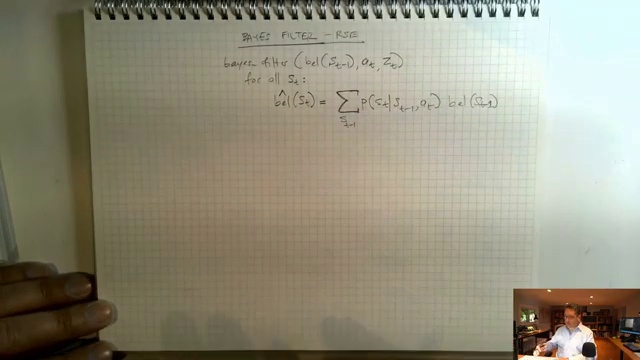 BAYES FILTER - RSE
bayes filter (bel(s_{t-1}), a_t, z_t)
for all s_t:
b̂el(s_t) = ∑_{s_{t-1}} p(s_t|s_{t-1}, a_t) bel(s_{t-1})